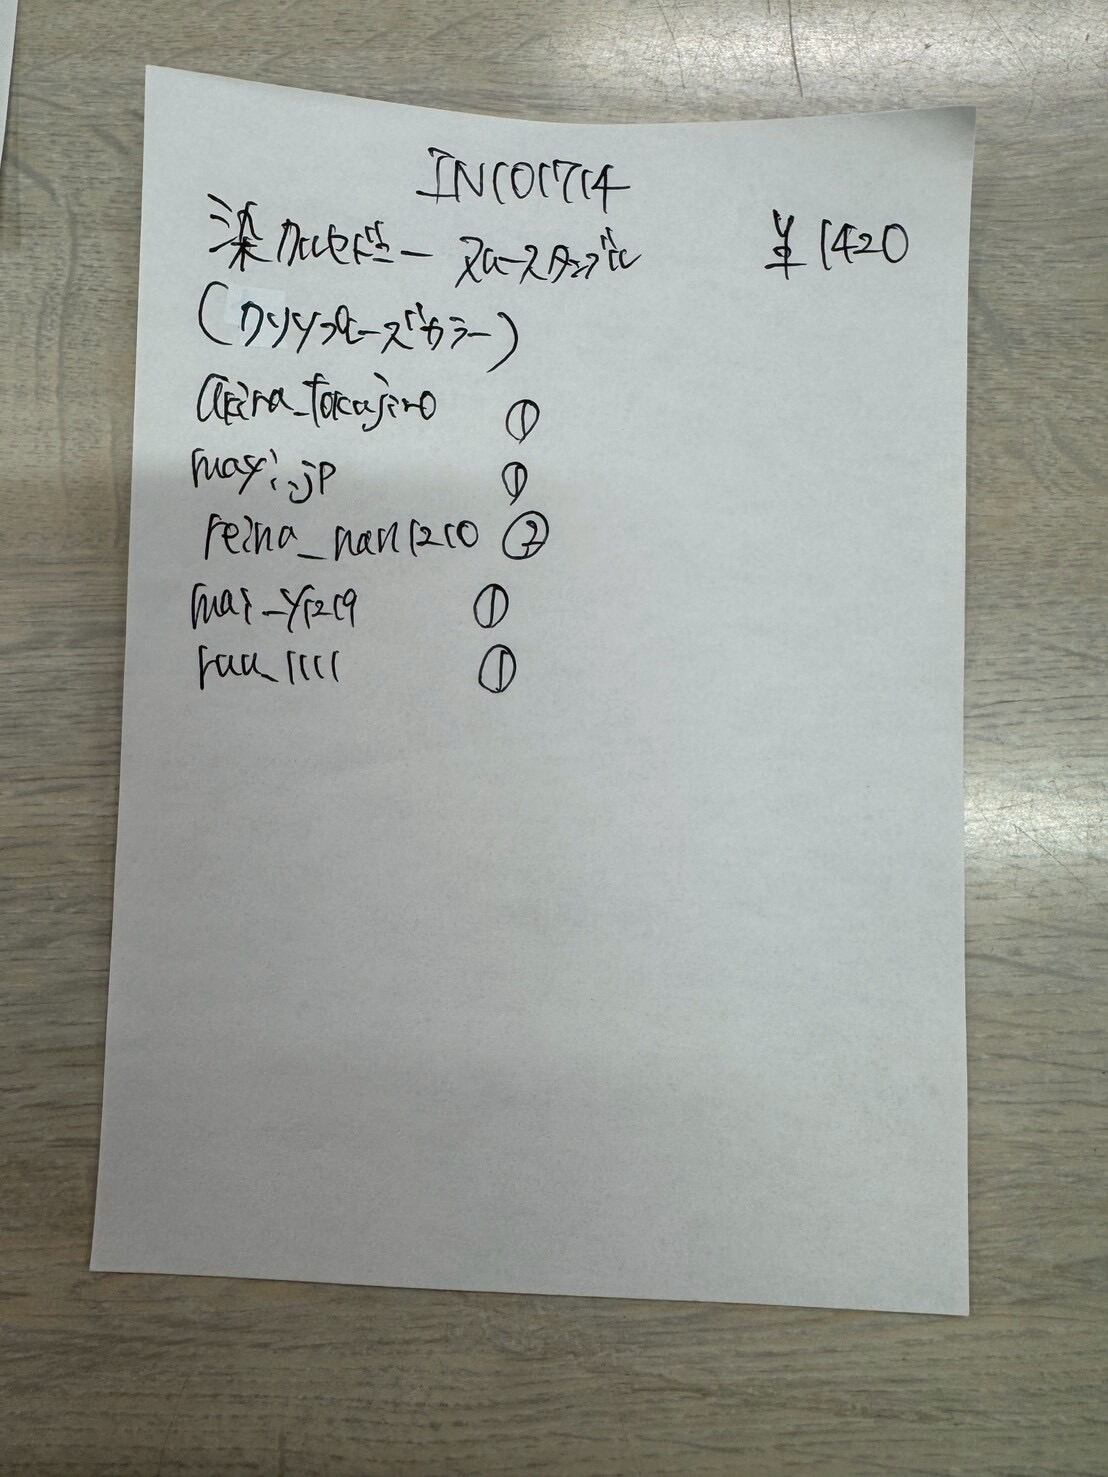 IN101714
染カルセドニー スロースタッズ ¥1420
(クリソプレーズカラー)
akira_takajiro
mayi.jp ①
reina_nan1210 ②
mai_y1219 ①
ruu_1111 ①